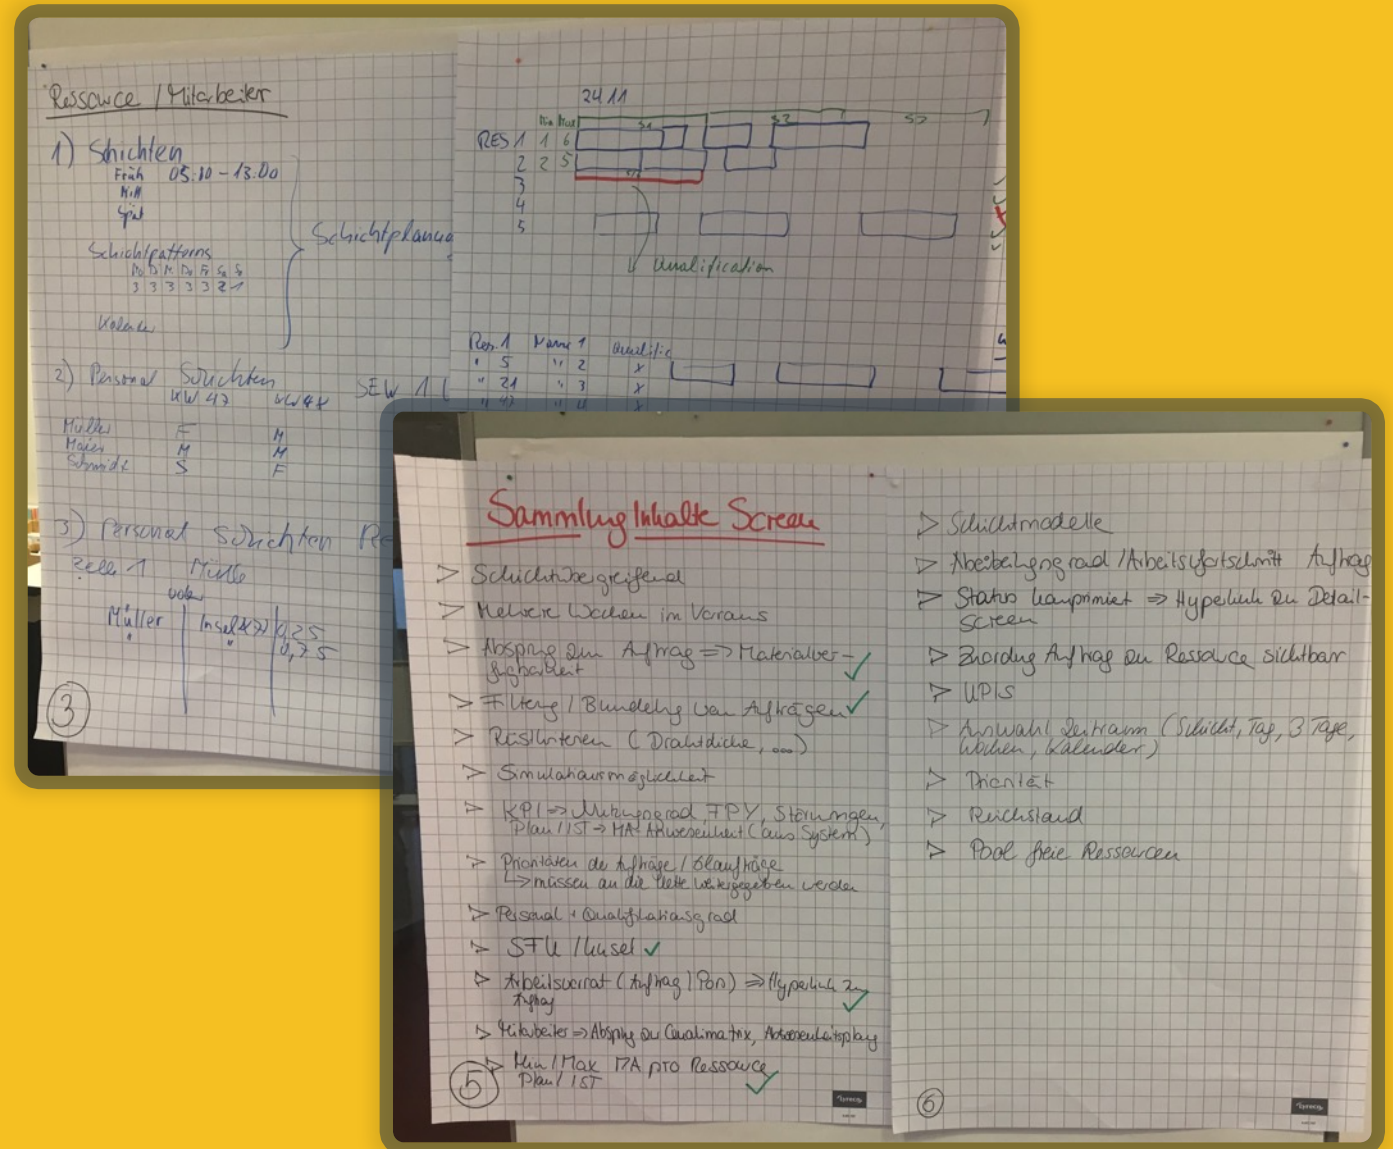 Ressource / Mitarbeiter
1) Schichten
Früh 05:10 - 13.00
Mitt
Spät
Schichtpatterns
Mo D M Do Fr Sa S
3 3 3 3 3 2 1
Schichtplanung
2) Personal Schichten
KW 47
Müller F M
Maier M M
Schmidt S F
3) Personal Schichten
Zelle 1
oder
Müller Insel 0,25
" " 0,75
3
24.11
Min Max S1 S2 S3
RES 1 1 6
2 2 5
3
4
5
Qualification
Res. 1 Name 1 Qualific
" 5 " 2 x
" 21 " 3 x
" 4 x
Sammlung Inhalte Screen
> Schichtübergreifend
> Mehrere Wochen im Voraus
> Absprung zum Auftrag => Materialver-
fügbarkeit ✓
> Filterung / Bündelung von Aufträgen ✓
> Rüstkriterien (Drahtdicke, ...)
> Simulationsmöglichkeit
> KPI => Nutzungsgrad, FPY, Störungen,
Plan / IST => MA-Anwesenheit (aus System)
> Prioritäten der Aufträge / Eilaufträge
↳ müssen an die Kette weitergegeben werden
> Personal + Qualifikationsgrad
> SFU / Insel ✓
> Arbeitsvorrat (Auftrag / Pos) => Hyperlink zum
Auftrag ✓
> Mitarbeiter => Absprung zu Qualimatrix, Abwesenheitsplanung
> Min / Max MA pro Ressource
Plan / IST ✓
5
> Schichtmodelle
> Abarbeitungsgrad / Arbeitsfortschritt Auftrag
> Status komprimiert => Hyperlink zu Detail-
Screen
> Zuordnung Auftrag zu Ressource sichtbar
> UPIS
> Auswahl Zeitraum (Schicht, Tag, 3 Tage,
Wochen, Kalender)
> Priorität
> Rückstand
> Pool freie Ressourcen
6